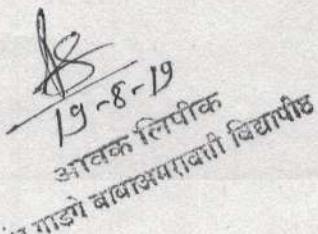 19-8-19
आवक लिपीक
गाडगे बाबा अमरावती विद्यापीठ